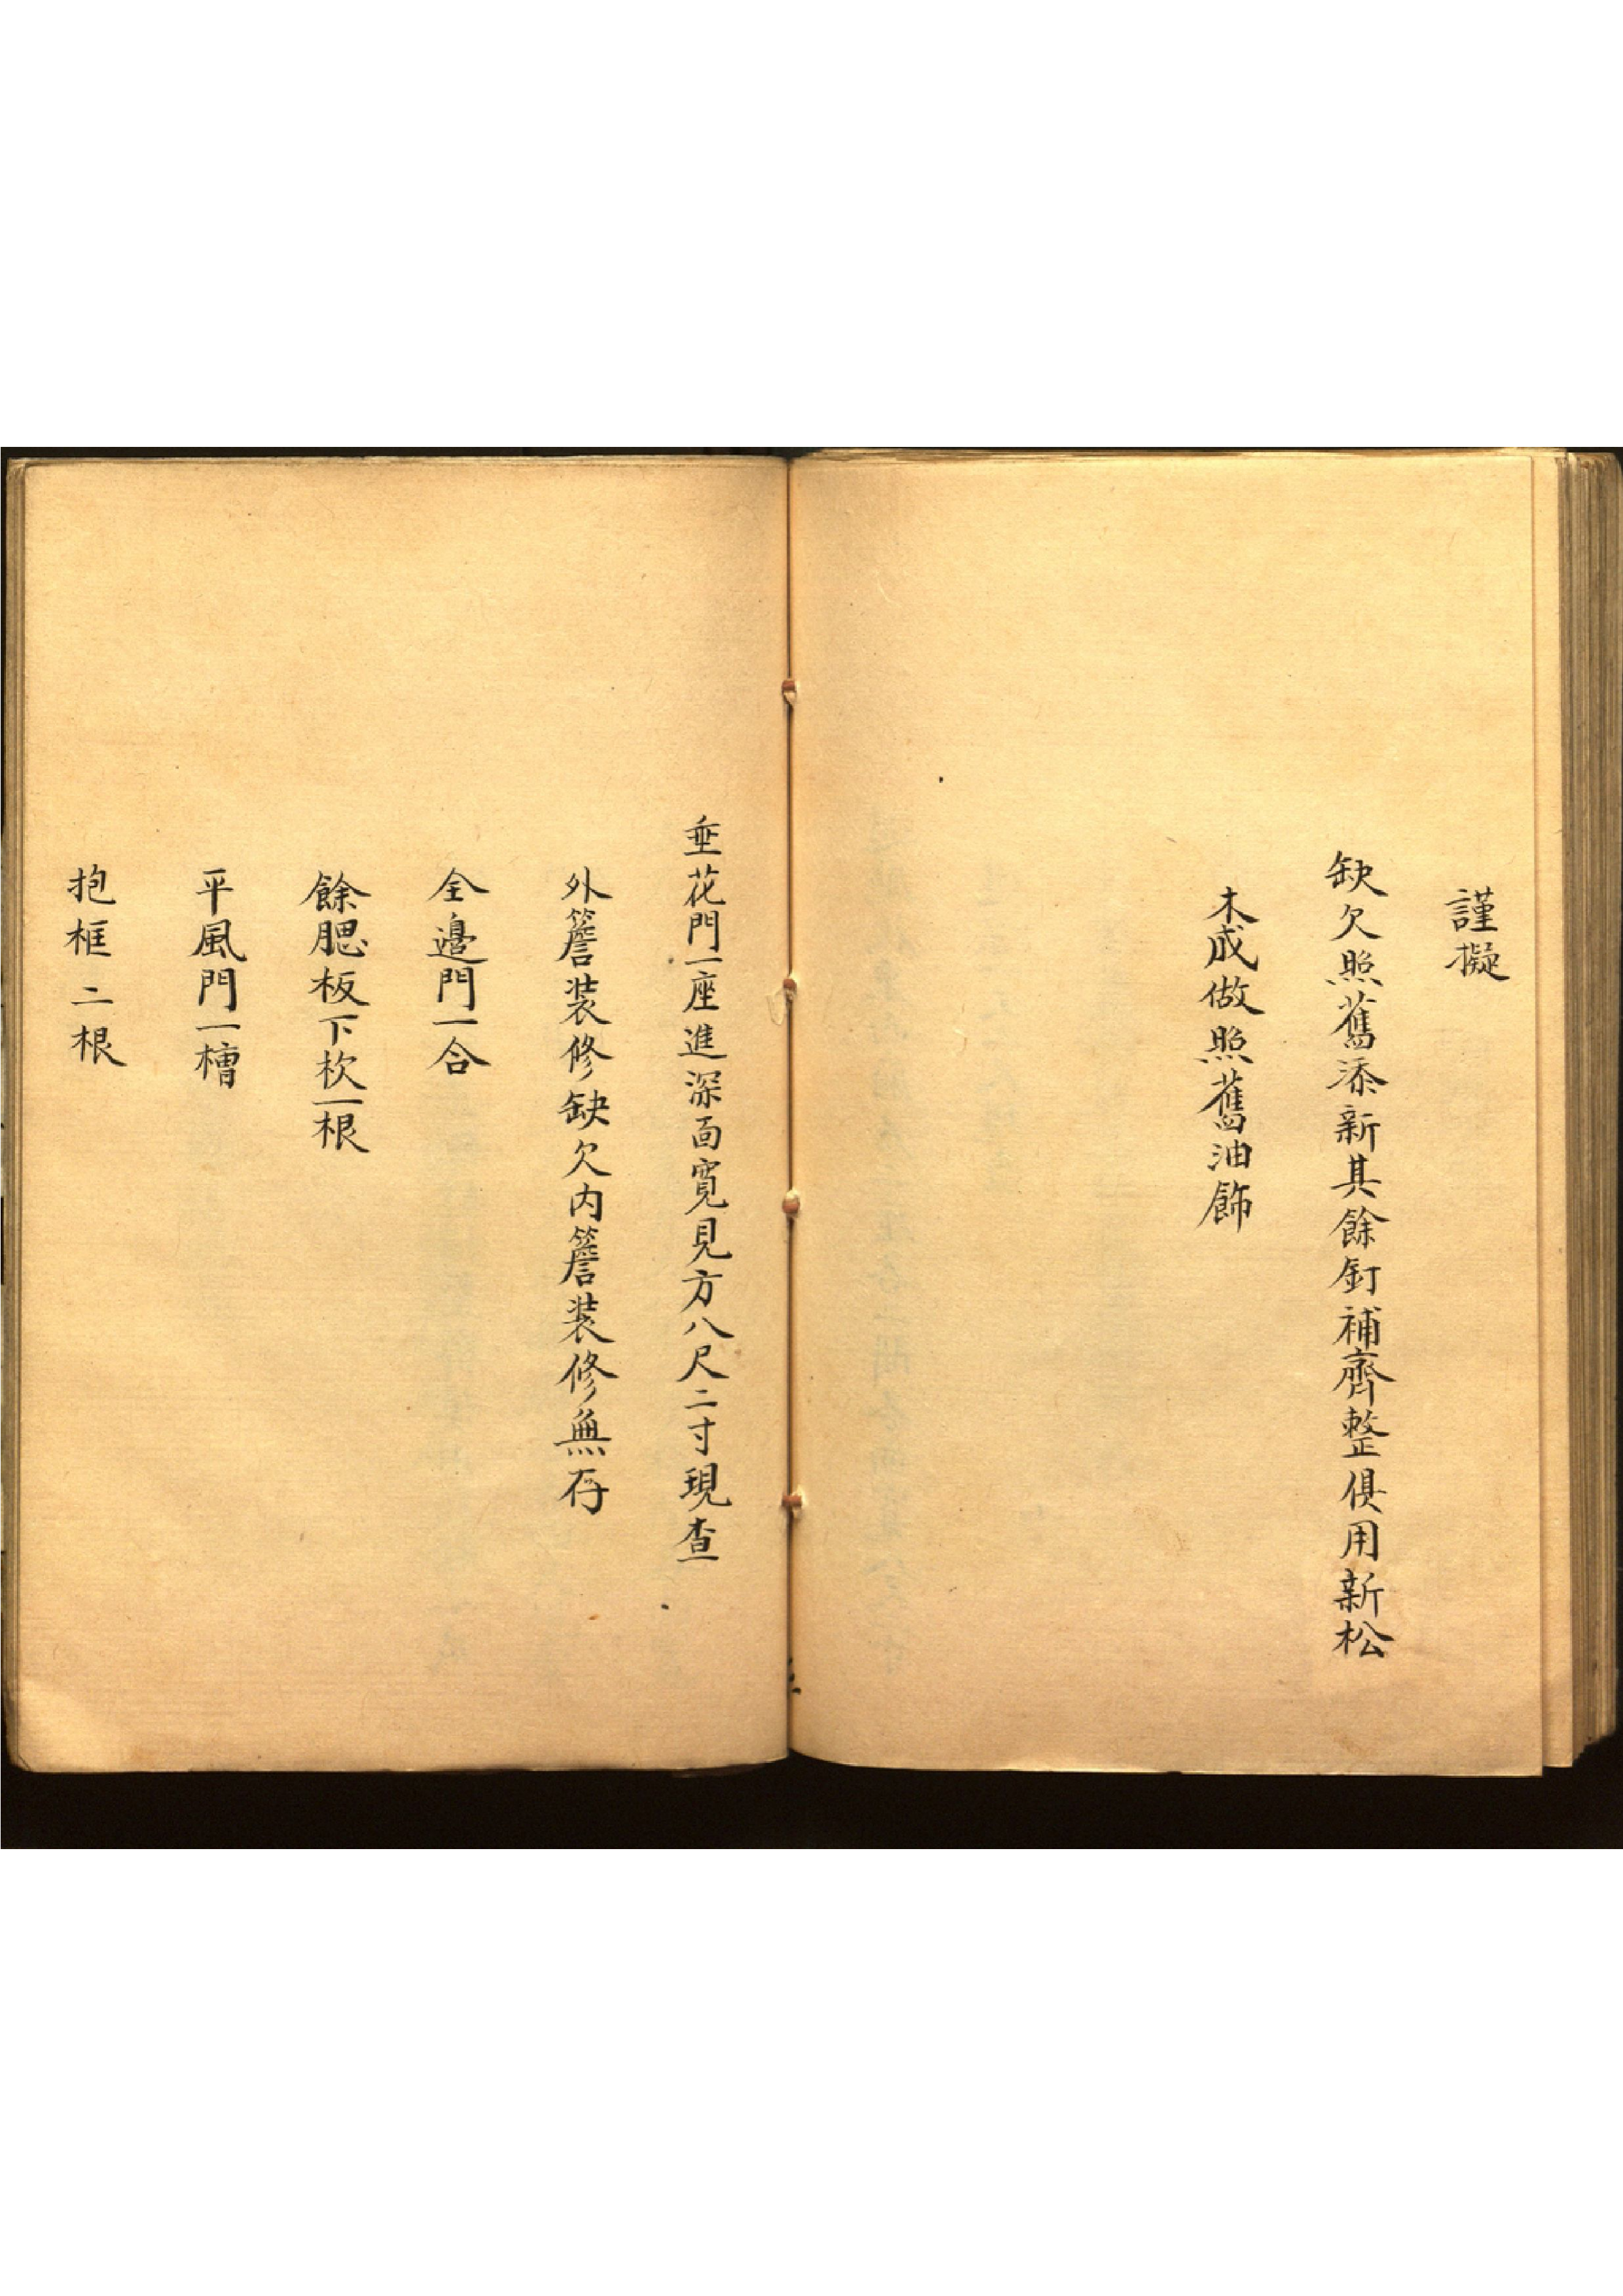 謹擬
缺欠照舊添新其餘釘補齊整俱用新松
木成做照舊油飾
垂花門一座進深面寬見方八尺二寸現查
外簷装修缺欠内簷装修無存
全邊門一合
餘腮板下枕一根
平風門一槽
抱框二根